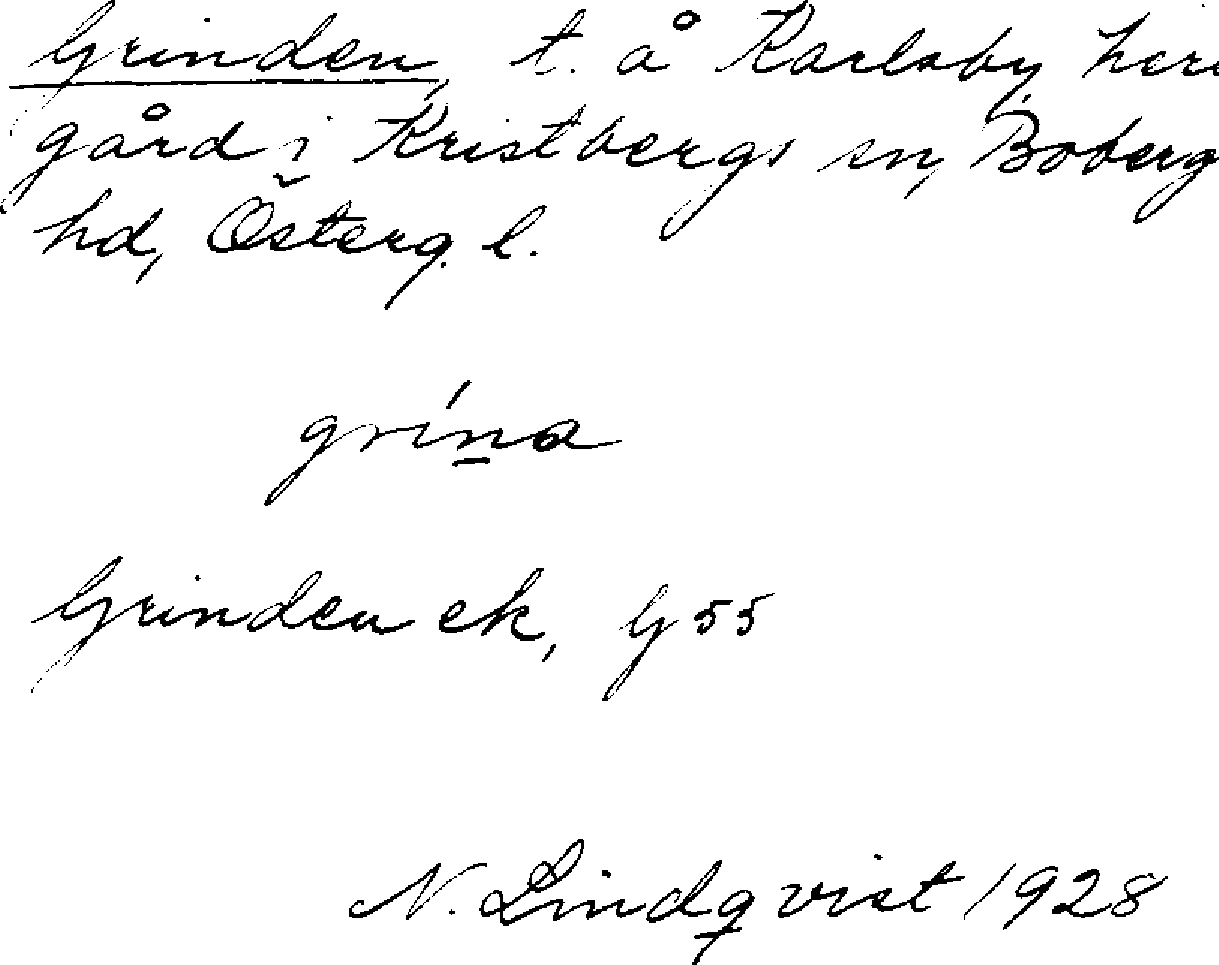 Grinden, t. å Karlsby herr
gård i Kristbergs sn, Boberg
hd, Österg. l.
grína
Grinden ek, G 55
N. Lindqvist 1928